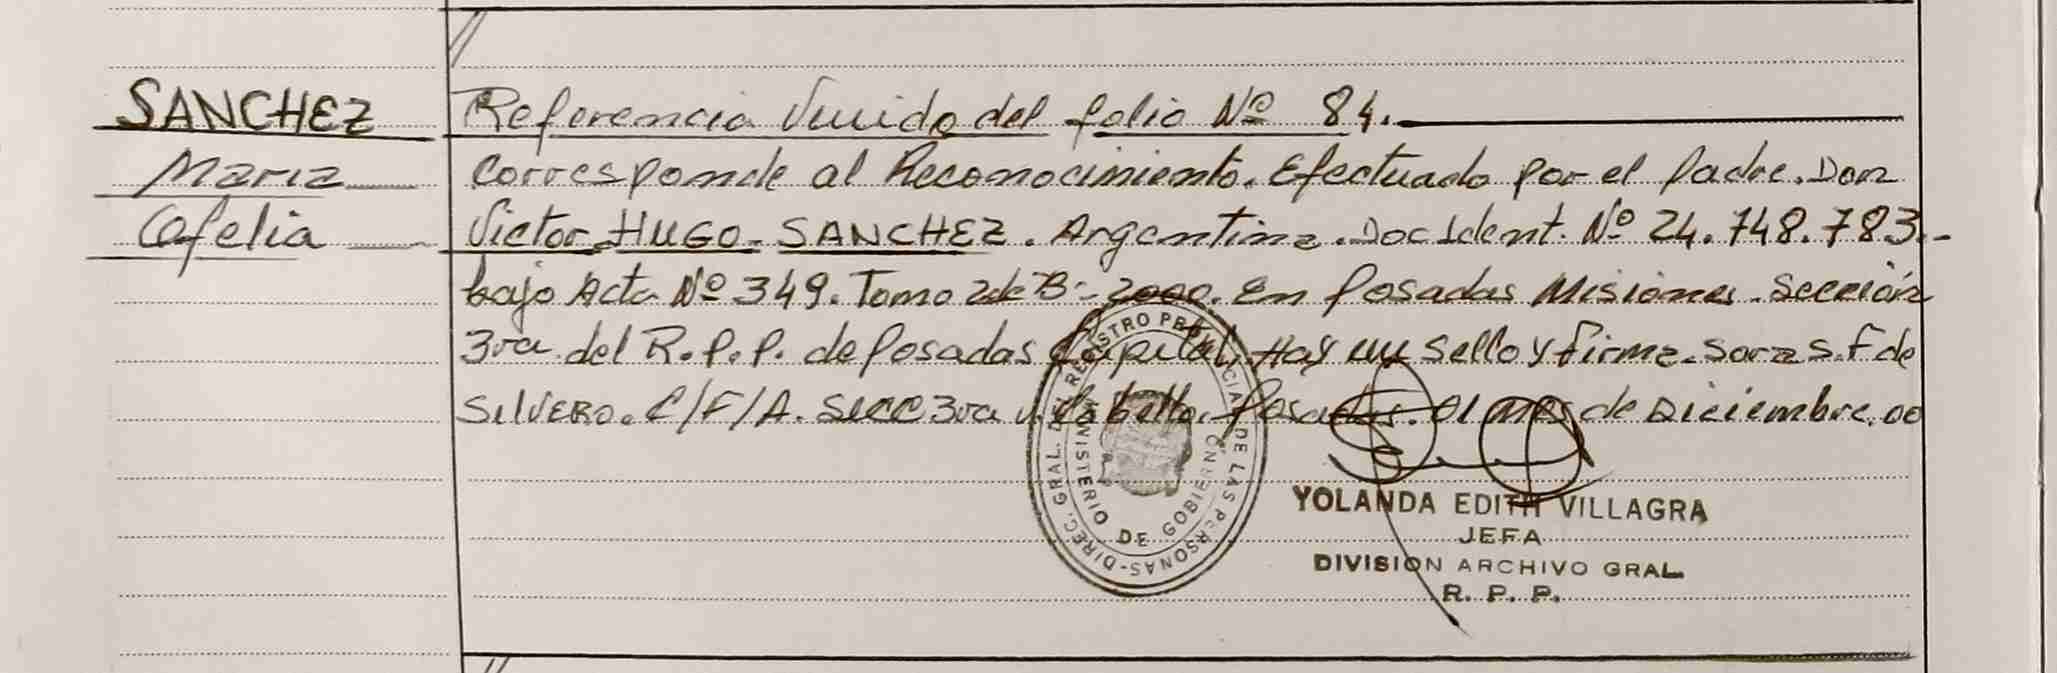 SANCHEZ
Maria
Ofelia
Referencia Venido del folio Nº 84.
Corresponde al Reconocimiento. Efectuado por el Padre. Don
Victor HUGO - SANCHEZ. Argentina. Doc Ident. Nº 24.748.783.-
bajo Acta Nº 349. Tomo 2 de B - 2000. En Posadas Misiones. Sección
3ra del R.P.P. de Posadas Capital. Hay un Sello y firma. Sara S. F de
SILVERO. C/F/A. SECC 3ra Posadas. 01 mes de Diciembre. 00
DIREC. GRAL. DEL REGISTRO PROVINCIAL DE LAS PERSONAS-
MINISTERIO DE GOBIERNO
YOLANDA EDITH VILLAGRA
JEFA
DIVISION ARCHIVO GRAL.
R. P. P.